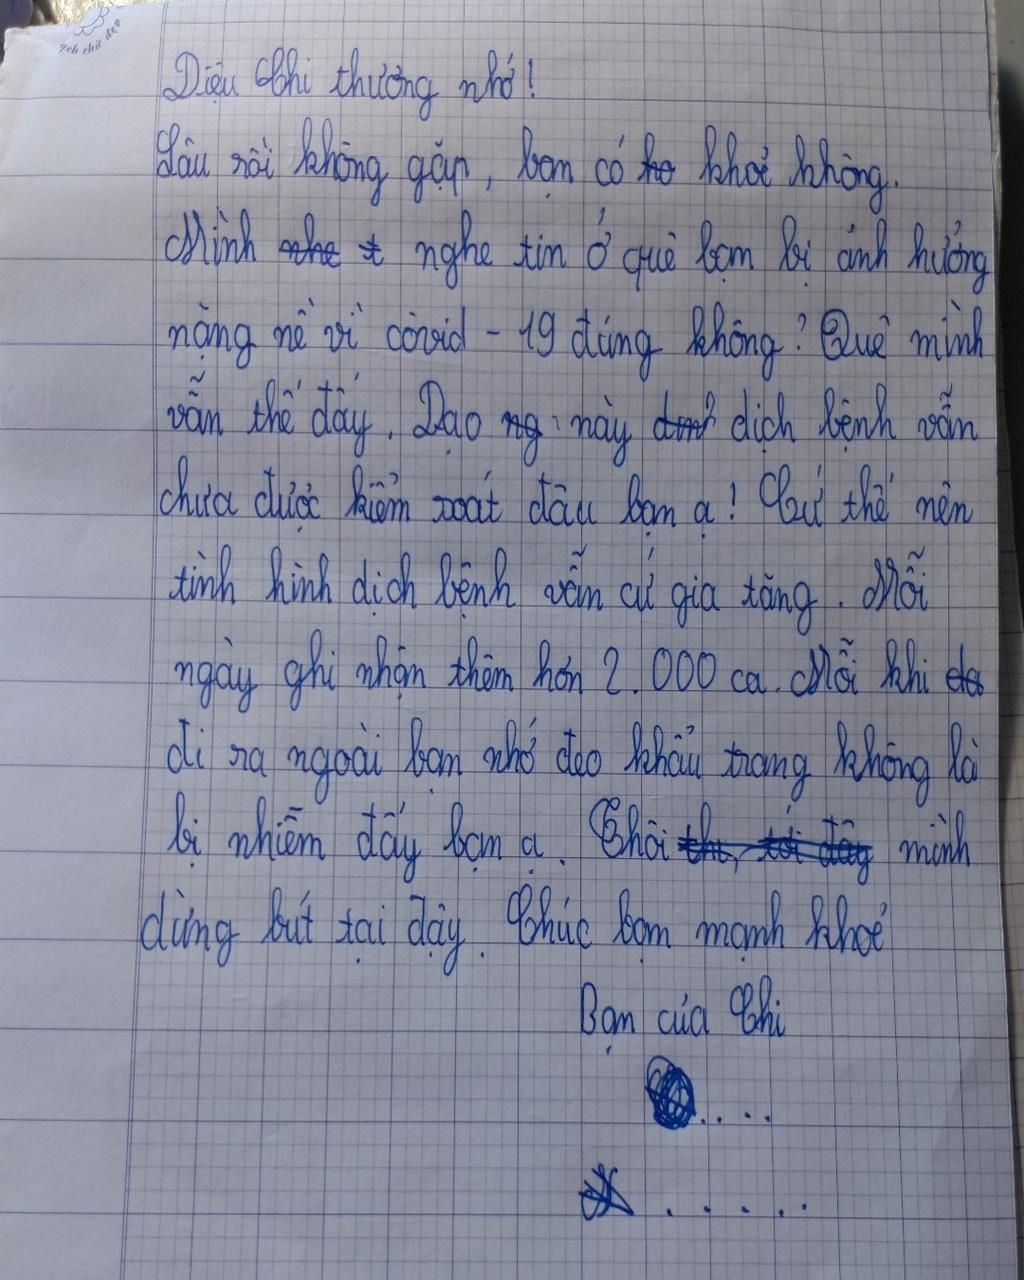 Diệu Chi thương nhớ!
Lâu rồi không gặp, bạn có khoẻ không.
Mình nghe tin ở quê bạn bị ảnh hưởng
nặng nề vì côvid - 19 đúng không? Quê mình
vẫn thế đấy. Dạo này dịch bệnh vẫn
chưa được kiểm xoát đâu bạn ạ! Cứ thế nên
tình hình dịch bệnh vẫn cứ gia tăng. Mỗi
ngày ghi nhận thêm hơn 2.000 ca. Mỗi khi
đi ra ngoài bạn nhớ đeo khẩu trang không là
bị nhiễm đấy bạn ạ. Thôi mình
dừng bút tại đậy. Chúc bạn mạnh khoẻ
Bạn của Chi
....
.....